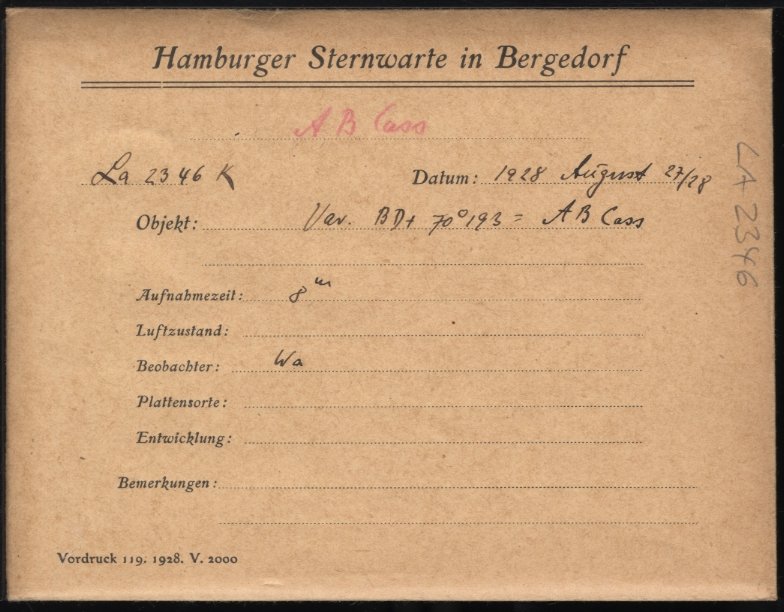 Hamburger Sternwarte in Bergedorf
A B Cass
La 2346 K Datum: 1928 August 27/28
Objekt: Var. BD+ 70°193 = A B Cass
Aufnahmezeit: 8ᵐ
Luftzustand:
Beobachter: Wa
Plattensorte:
Entwicklung:
Bemerkungen:
Vordruck 119. 1928. V. 2000
LA 2346